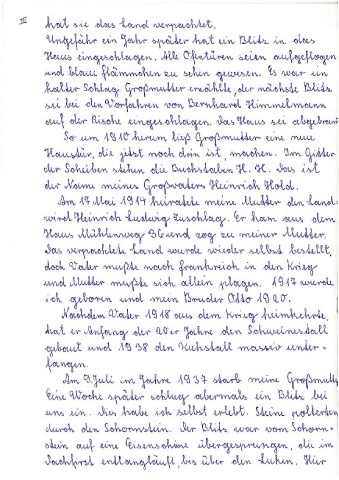 III
hat sie das Land verpachtet.
Ungefähr ein Jahr später hat ein Blitz in das
Haus eingeschlagen. Alle Ofentüren seien aufgeflogen
und blaue Flämmchen zu sehen gewesen. Es war ein
kalter Schlag. Großmutter erzählte, der nächste Blitz
sei bei den Vorfahren von Bernhard Himmelmann
auf der Rische eingeschlagen. Das Haus sei abgebrannt
So um 1910 herum ließ Großmutter eine neue
Haustür, die jetzt noch drin ist, machen. Im Gitter
der Scheiben stehen die Buchstaben H. H. Das ist
der Name meines Großvaters Heinrich Hold.
Am 17 Mai 1914 heiratete meine Mutter den Land-
wird Heinrich Ludwig Zuschlag. Er kam aus dem
Haus Mühlenweg 36 und zog zu meiner Mutter.
Das verpachtete Land wurde wieder selbst bestellt,
doch Vater mußte nach Frankreich in den Krieg
und Mutter mußte sich allein plagen. 1917 wurde
ich geboren und mein Bruder Otto 1920.
Nachdem Vater 1918 aus dem Krieg heimkehrte,
hat er Anfang der 20er Jahre den Schweinestall
gebaut und 1938 den Kuhstall massiv unter-
fangen.
Am 9. Juli im Jahre 1937 starb meine Großmutter
Eine Woche später schlug abermals ein Blitz bei
uns ein. Dies habe ich selbst erlebt. Steine polterten
durch den Schornstein. Der Blitz war vom Schorn-
stein auf eine Eisenschiene übergesprungen, die im
Dachfirst entlangläuft, bis über den Luken. Hier